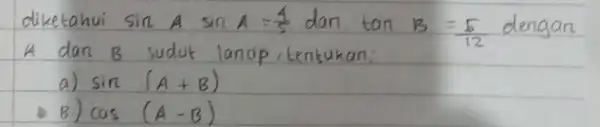 diketahui sin A sin A = 4/5 dan tan B = 5/12 dengan
A dan B sudut lancip, tentukan:
a) sin (A + B)
B) cos (A - B)